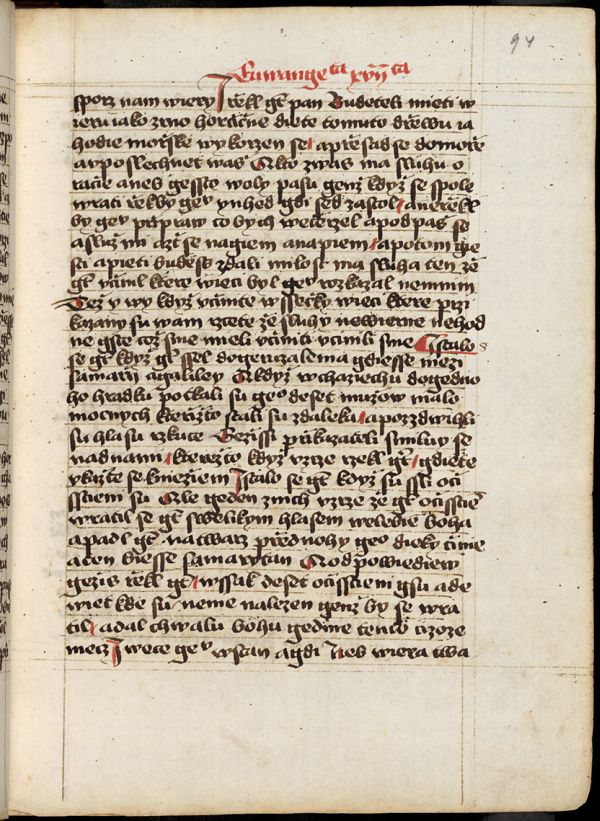 94
Ewange ta xvii ta
sporz nam wiery I rzekl gt pan Budeteli mieti w
zeru iako zrno horczicne diete tomuto drzewu za
hodie morzske wykorzen se a przesad se do morze
a vposlechnet was A kto zwas ma sluhu o
racie aneb gesste woly pasu genz kdyz se s pole
wrati rzekby gev ynhed gdi sed zastol a nerzekl
by gev pripraw to bych weczerzel a podpas se
a sluz mi azt se nagiem a napiem a potom gie
sti a pieti budess zdali milost ma sluha ten ze
gt vczinil ktere wieci byl gev rozkazal nemnim
Tez y wy kdyz vczinite wssecky wieci ktere przi
kazany su wam rcete ze sluhy newierne nehod
ne gste coz sme mieli vcziniti vczinili sme Stalo
se gt kdyz gt ssel do geruzalema gdiesse mezi
samarzi a galiley A kdyz wchaziechu do gedno
ho hradku potkali su geo deset muzow malo
mocnych kterzizto stali su zdaleku a pozdwihli
su hlasu rzkuce Gezissi przikazateli smiluy se
nad nami kterezto kdyz vzrze rzekl gt gdiete
vkazte se kniezem I stalo se gt kdyz su ssli oczi
sstieni su Ale geden znich vzrze ze gt oczisstien
wratil se gt s welikym hlasem welebie boha
a padl gt na twarz przed nohy geo dieky czinie
a ten biesse samarytan A odpowiediew
gezis rzekl gt wssak deset oczisstieni gsu a de
wiet kde su neme nalezen genz by se wra
til a dal chwalu bohu gedine tento czizoze
mecz I wece gev wstan a gdi neb wiera twa